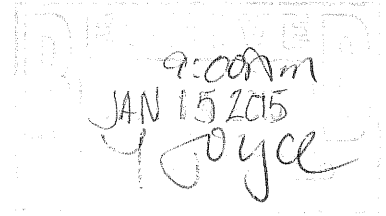 RECEIVED
9:00Am
JAN 15 2015
Y Joyce